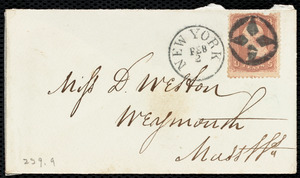 NEW YORK
FEB
2
Miss D. Weston
Weymouth
Mass
239.9